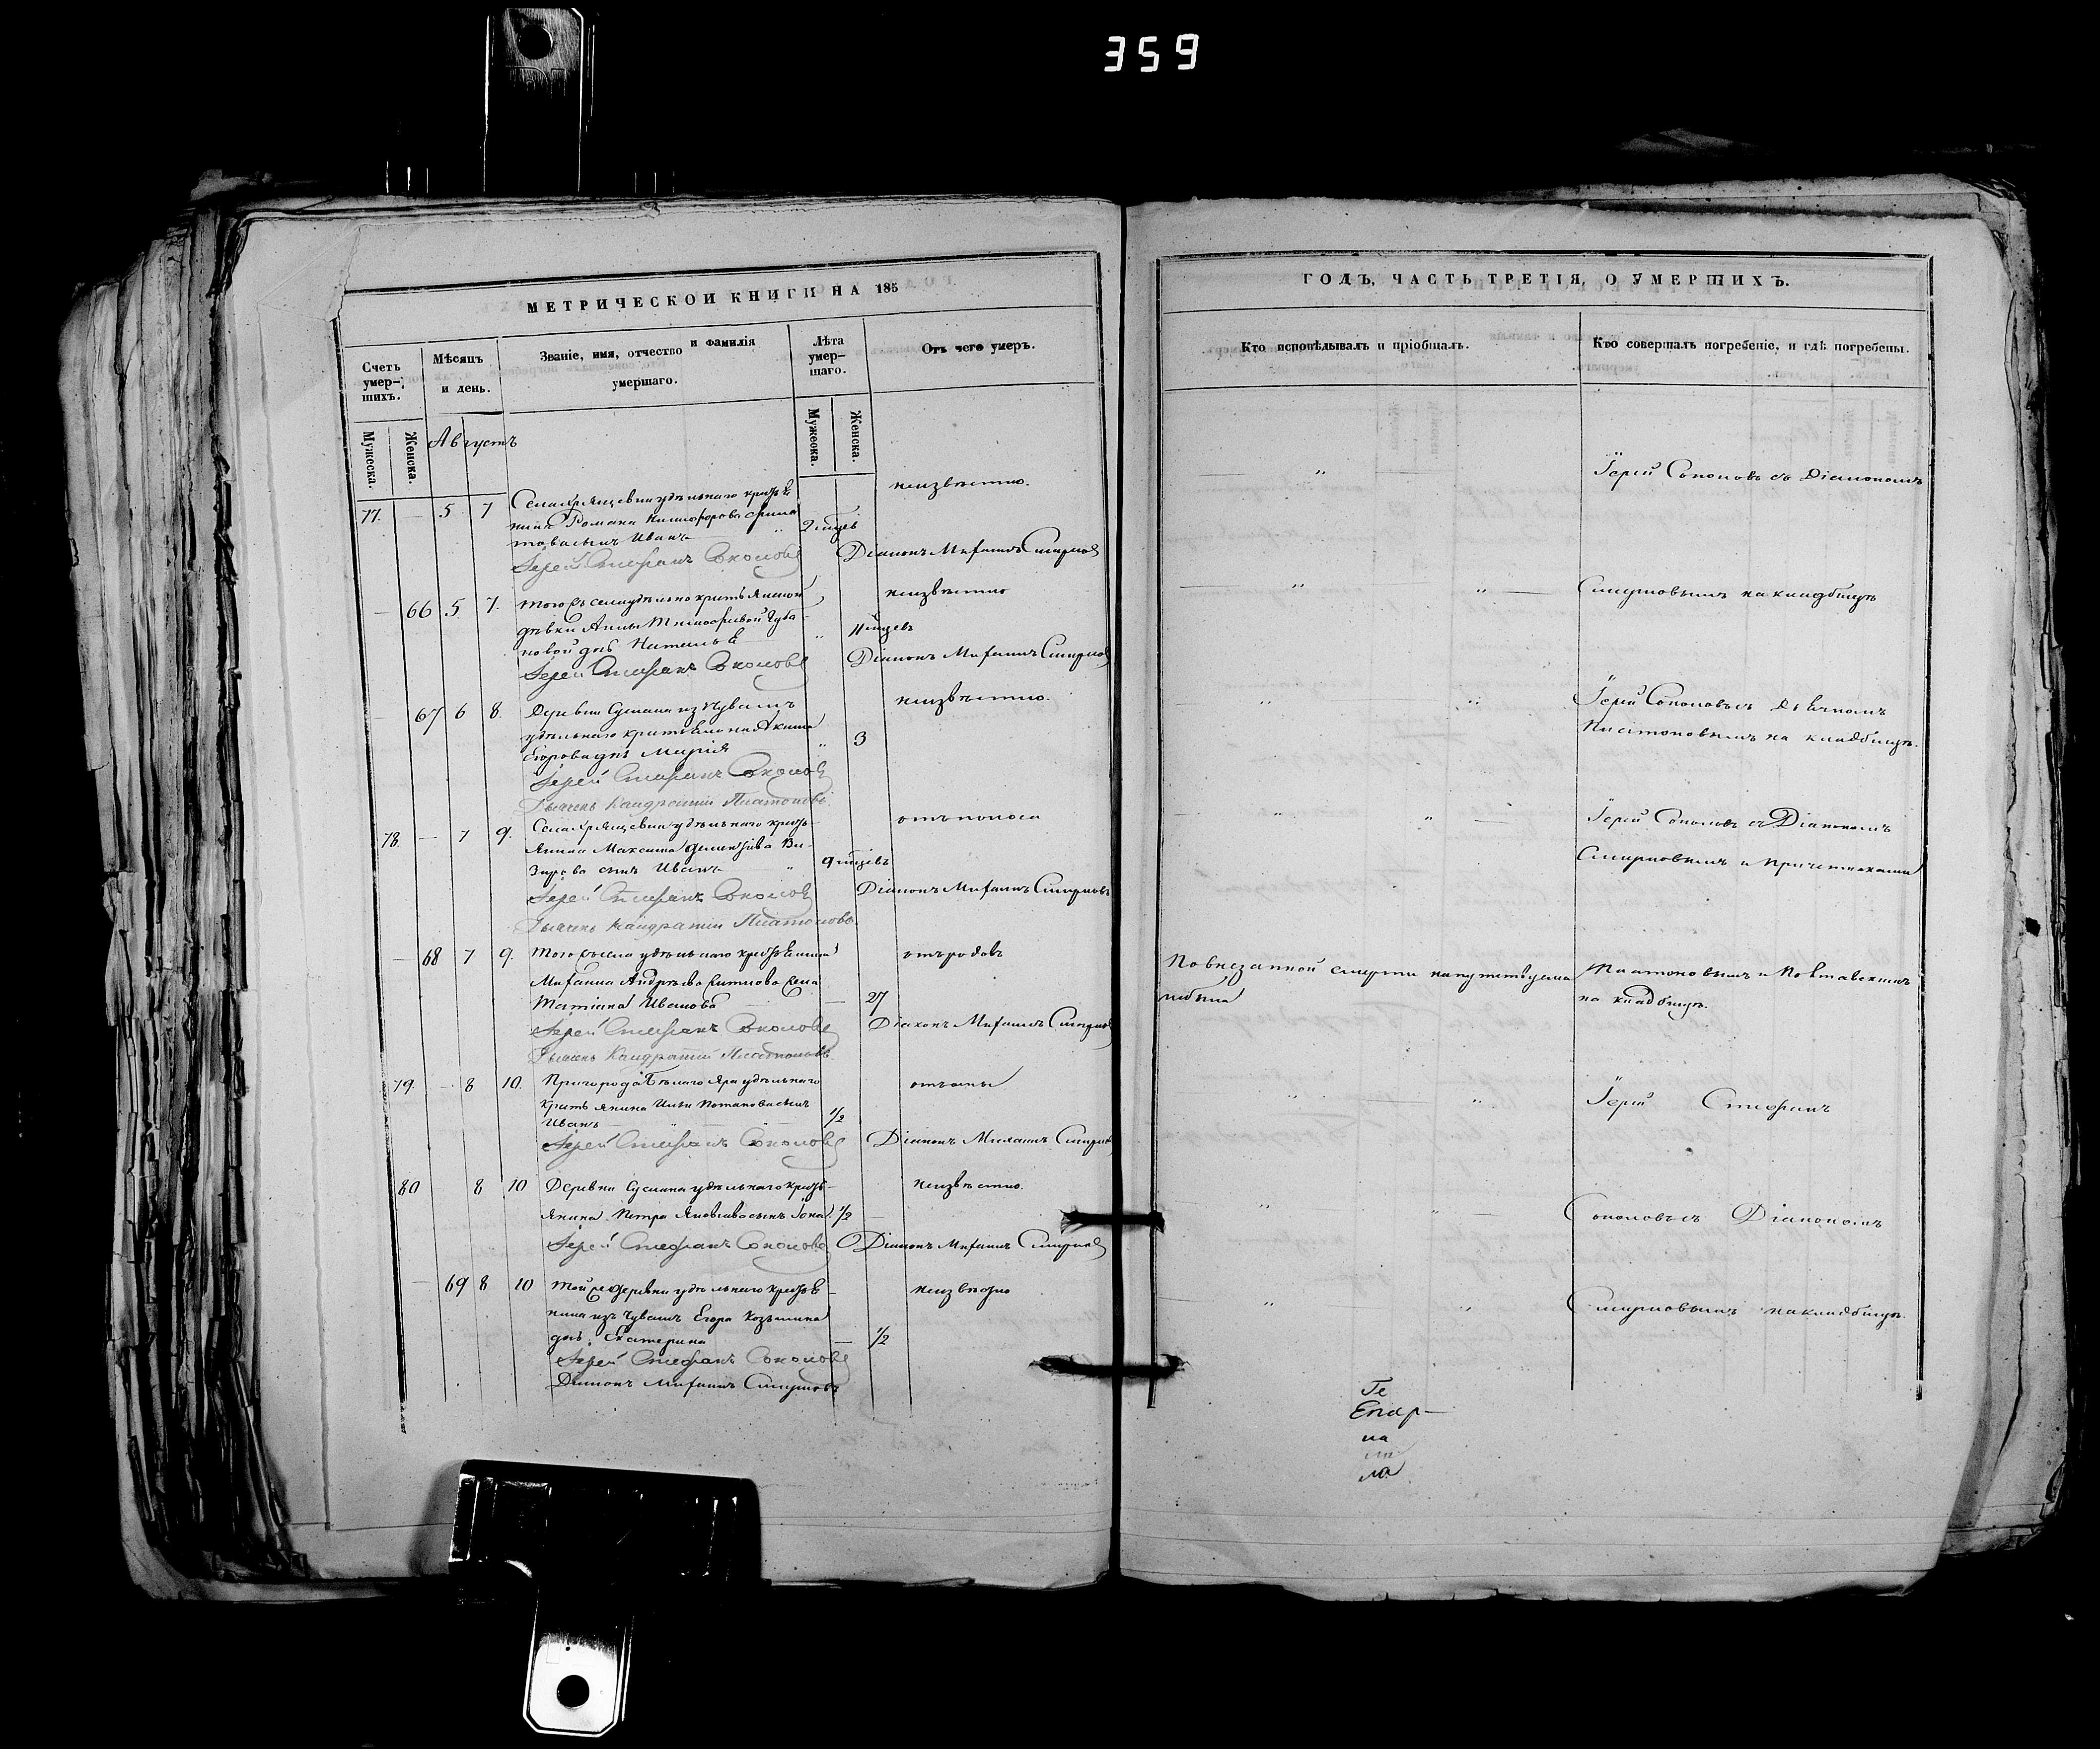 359
МЕТРИЧЕСКОЙ КНИГИ НА 185
Счетъ умер-шихъ.
Мѣсяцъ и день.
Званіе, имя, отчество и фамилія умершаго.
Лѣта умер-шаго.
Отъ чего умеръ.
Мужеска.
Женска.
Августъ
Мужеска.
Женска.
77. — 5 7 Села Хрящевки удѣльнаго крестья
нина Романа Никифорова
сынъ Иванъ
неизвѣстно.
Іерей Стефанъ Соколовъ
Діаконъ Михаилъ Смирновъ
— 66 5 7. Того жъ села удѣльно крестьянской
дѣвки Анны Тимофеевой
дочь Наталья
неизвѣстно
Іерей Стефанъ Соколовъ
Діаконъ Михаилъ Смирновъ
— 67 6 8. Деревни Сускана изъ Чувашъ
удѣльнаго крестьянина
Егорова дочь Марія " 3
неизвѣстно.
Іерей Стефанъ Соколовъ
Дьячекъ Кандратій Платоновъ
78. — 7 9. Села Хрящевки удѣльнаго кресть-
янина Максима
сынъ Иванъ
отъ поноса
Іерей Стефанъ Соколовъ
Діаконъ Михаилъ Смирновъ
Дьячекъ Кандратій Платоновъ
— 68 7 9. Того жъ села удѣльнаго крестьянина
Михаила Андреева жена
Татіана Иванова — 27
отъ родовъ
Іерей Стефанъ Соколовъ
Діаконъ Михаилъ Смирновъ
Дьячекъ Кандратій Платоновъ
79. — 8 10. Пригорода Бѣлаго Яра удѣльнаго
крестьянина Ильи Потапова сынъ
Иванъ 1/2
Іерей Стефанъ Соколовъ
Діаконъ Михаилъ Смирновъ
80 8 10 Деревни Сускана удѣльнаго кресть-
янина Петра Яковлева сынъ 1/2
неизвѣстно.
Іерей Стефанъ Соколовъ
Діаконъ Михаилъ Смирновъ
— 69 8 10 Той же деревни удѣльнаго крестья-
нина изъ Чувашъ Егора Козьмина
дочь Екатерина — 1/2
неизвѣстно
Іерей Стефанъ Соколовъ
Діаконъ Михаилъ Смирновъ
ГОДЪ, ЧАСТЬ ТРЕТІЯ, О УМЕРШИХЪ.
Кто исповѣдывалъ и пріобщалъ.
Кто совершалъ погребеніе, и гдѣ погребены.
Іерей Соколовъ съ Діакономъ
Смирновымъ на кладбищѣ
Іерей Соколовъ съ Дьячкомъ
Платоновымъ на кладбищѣ.
Іерей Соколовъ съ Діакономъ
Смирновымъ и Причетниками
По внезапной смерти напутствуема
небыла
Платоновымъ и
на кладбищѣ.
Іерей Стефанъ
Соколовъ съ Діакономъ
Смирновымъ на кладбищѣ.
Ге
Епар-
на
ла